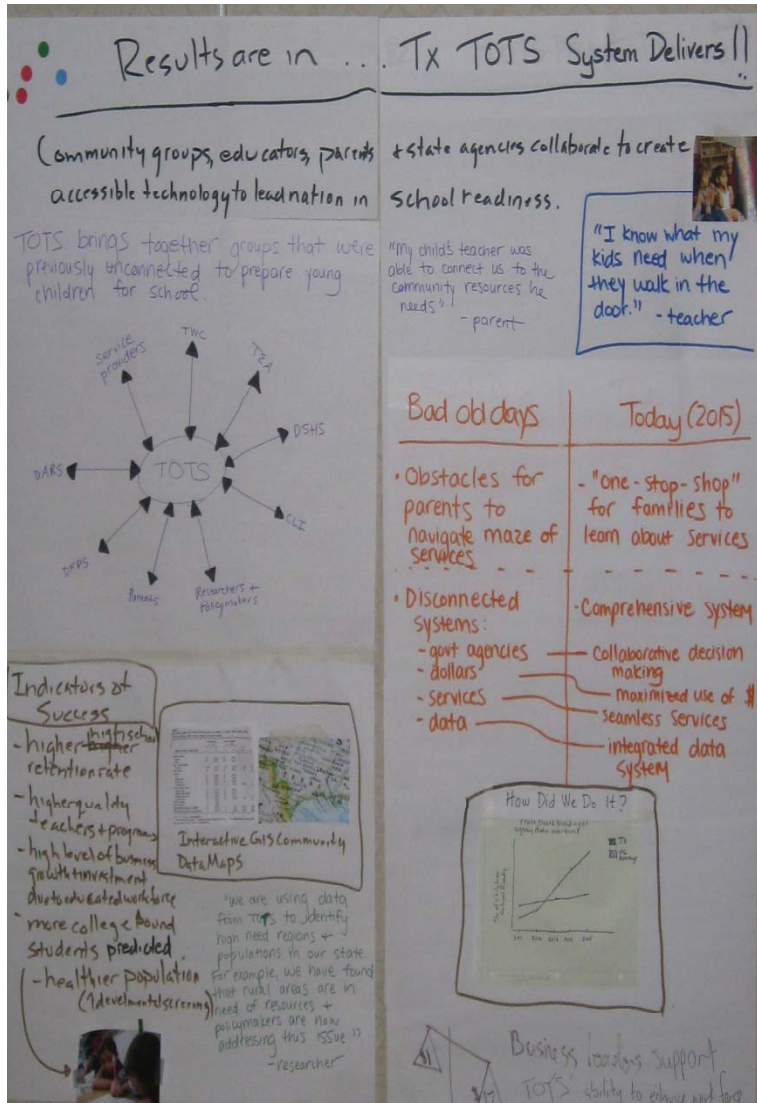 Results are in .... Tx TOTS System Delivers!!
Community groups, educators, parents + state agencies collaborate to create
accessible technology to lead nation in school readiness.
TOTS brings together groups that were
previously unconnected to prepare young
children for school.
"My child's teacher was
able to connect us to the
community resources he
needs."
- parent
"I know what my
kids need when
they walk in the
door." - teacher
Service
providers
TWC
TEA
DSHS
CLI
Researchers +
Policymakers
Parents
DFPS
DARS
TOTS
Bad old days
Today (2015)
• Obstacles for
parents to
navigate maze of
services
- "one-stop-shop"
for families to
learn about services
• Disconnected
systems:
- govt agencies
- dollars
- services
- data
- Comprehensive system
collaborative decision
making
maximized use of $
seamless services
integrated data
system
Indicators of
Success
- higher high school
retention rate
- higher quality
teachers + programs
- high level of business
growth + investment
due to educated workforce
- more college bound
students predicted.
- healthier population
Interactive GIS Community
Data Maps
"We are using data
from TOTS to identify
high need regions +
populations in our state.
For example, we have found
that rural areas are in
need of resources +
policymakers are now
addressing this issue"
- researcher
How Did We Do It?
TX
Business leaders support
TOTS' ability to enhance work force